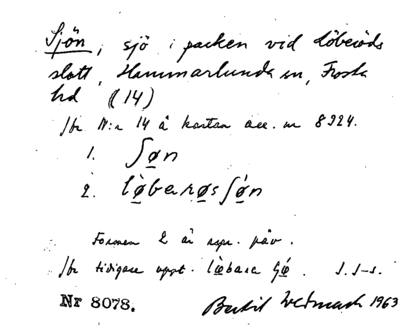 Sjön, sjö i parken vid Löberöds
slott, Hammarlunda sn, Frosta
hd (14)
Jfr Nr 14 å kartan acc. nr 8324.
1. ʃøn
2. løbarøsʃøn
Formen 2 är uppr. påv.
Jfr tidigare uppt.
Nr 8078.
Bertil 1963